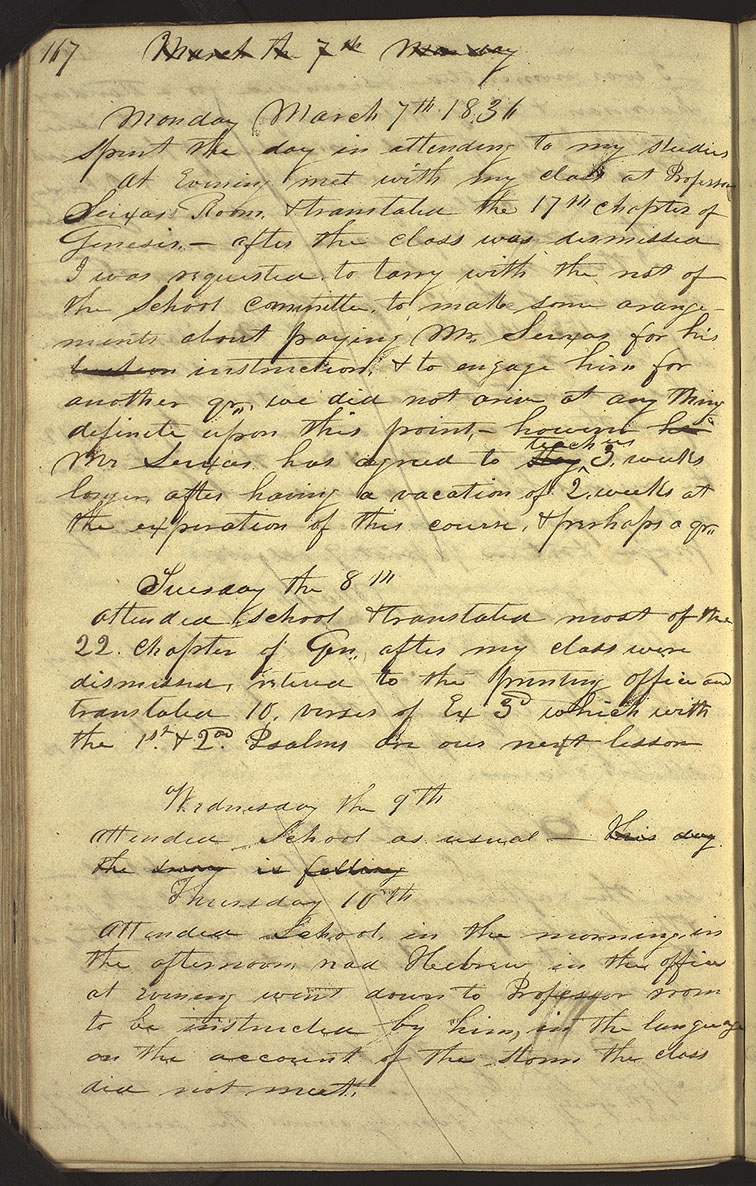 167 March th 7th Monday
Monday March 7th 1836
Spent the day in attending to my studies
At Evening met with my class at Professor
Seixas Room, & translated the 17th chapter of
Genesis,— after the class was dismissed
I was requested to tarry with the rest of
the School committee, to make some arange-
ments about paying Mr. Seixas for his
instruction, & to engage him for
another qr,, we did not arive at any thing
definite upon this point,— however he
teach us
Mr Seixas has agreed to stay 3, weeks
longer, after having a vacation of 2, weeks at
the expiration of this course, & perhaps a qr,,
Tuesday the 8th
attended School & translated most of the
22. chapter of Gen,, after my class were
dismissed, retired to the printing office and
translated 10, verses of Ex 3d which with
the 1st, & 2nd. Psalms are our next lesson
Wednesday the 9th
Attended School as usual— this day
the snow is falling
Thursday 10th
Attended School, in the morning, in
the afternoon, read Hebrew in the office
at evening went down to Professor room
to be instructed by him, in the language
on the account of the storm the class
did not meet.